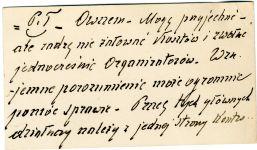 = P.T Owszem - Mogę przyjechać -
ale radzę nie żałować kosztów i zwołać
jednocześnie Organizatorów. Wza-
jemne porozumienie może ogromnie
pomóc sprawie - Przez tych głównych
działaczy należy z jednej strony